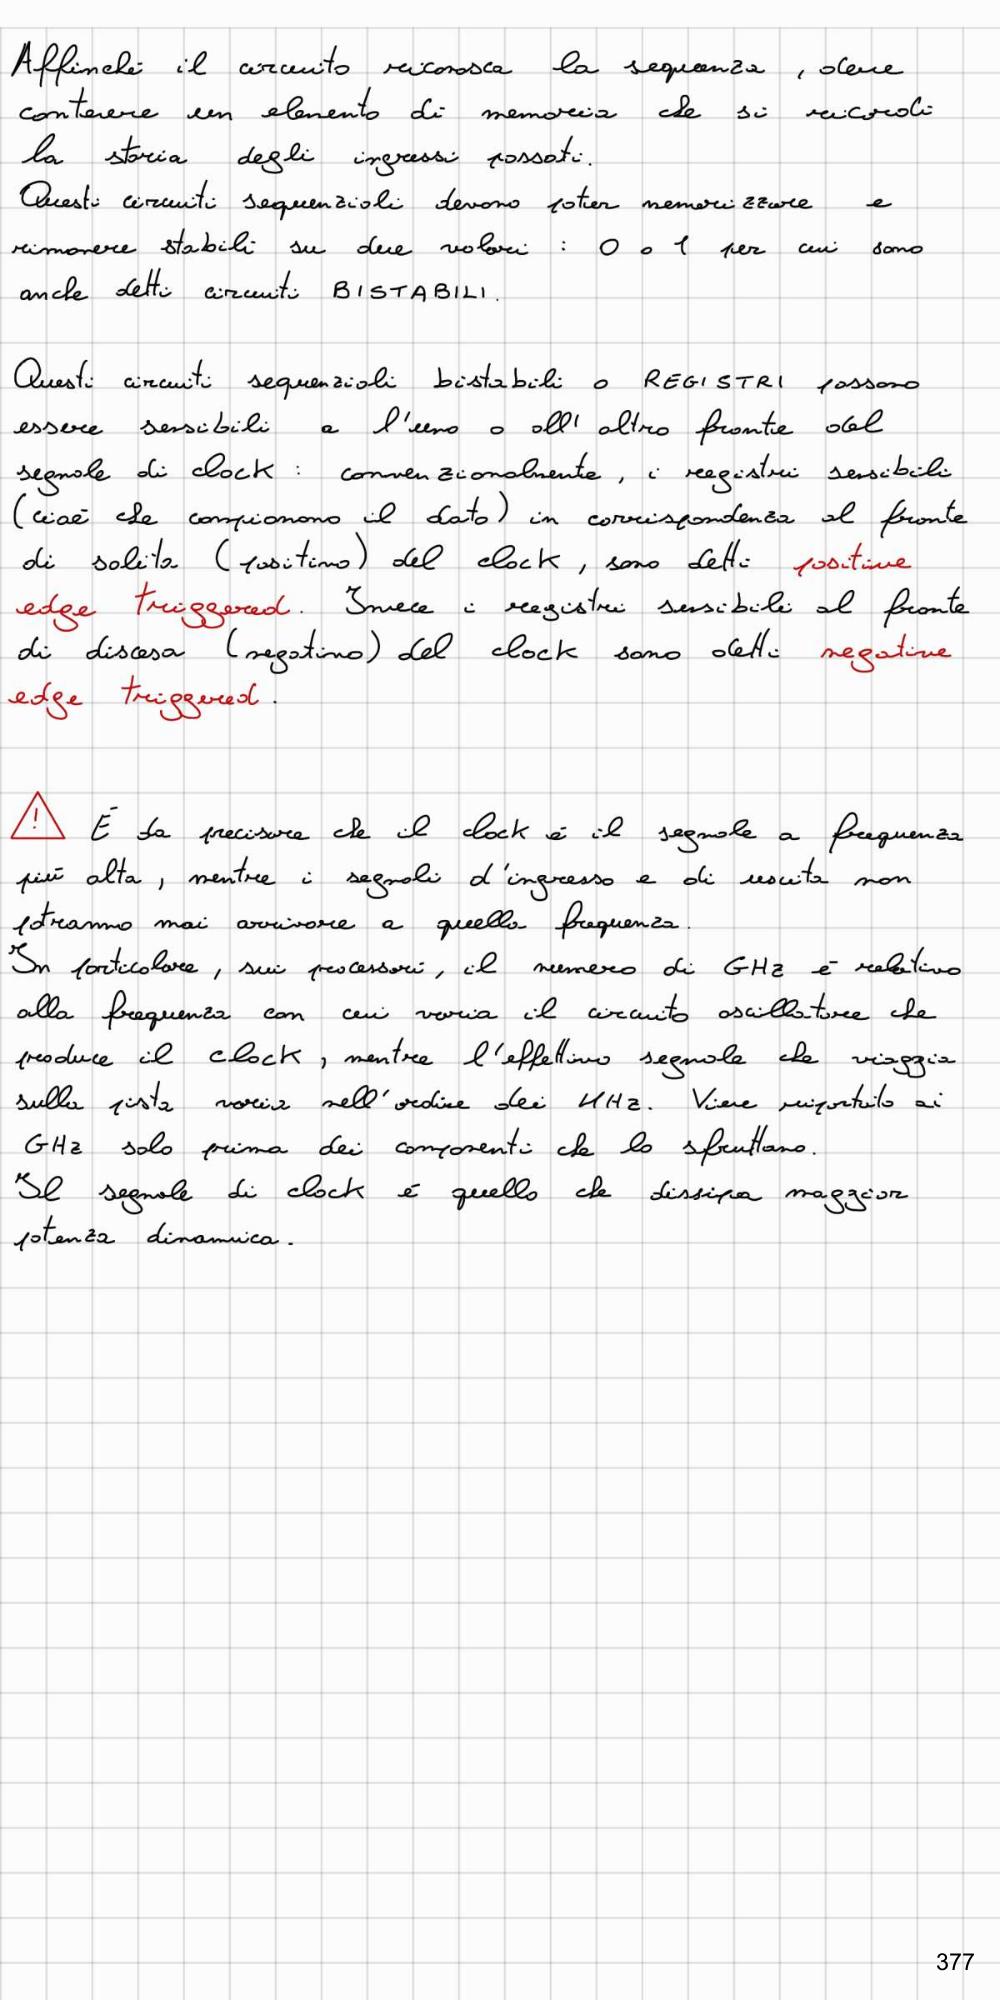 Affinché il circuito riconosca la sequenza, deve
contenere un elemento di memoria che si ricordi
la storia degli ingressi passati.
Questi circuiti sequenziali devono poter memorizzare e
rimanere stabili su due valori : 0 o 1 per cui sono
anche detti circuiti BISTABILI.
Questi circuiti sequenziali bistabili o REGISTRI possono
essere sensibili a l'uno o all' altro fronte del
segnale di clock : convenzionalmente, i registri sensibili
(cioè che campionano il dato) in corrispondenza al fronte
di salita (positivo) del clock, sono detti positive
edge triggered. Invece i registri sensibili al fronte
di discesa (negativo) del clock sono detti negative
edge triggered.
! È da precisare che il clock è il segnale a frequenza
più alta, mentre i segnali d'ingresso e di uscita non
potranno mai arrivare a quella frequenza.
In particolare, sui processori, il numero di GHz è relativo
alla frequenza con cui varia il circuito oscillatore che
produce il clock, mentre l'effettivo segnale che viaggia
sulla pista varia nell'ordine dei KHz. Viene riportato ai
GHz solo prima dei componenti che lo sfruttano.
Il segnale di clock è quello che dissipa maggior
potenza dinamica.
377